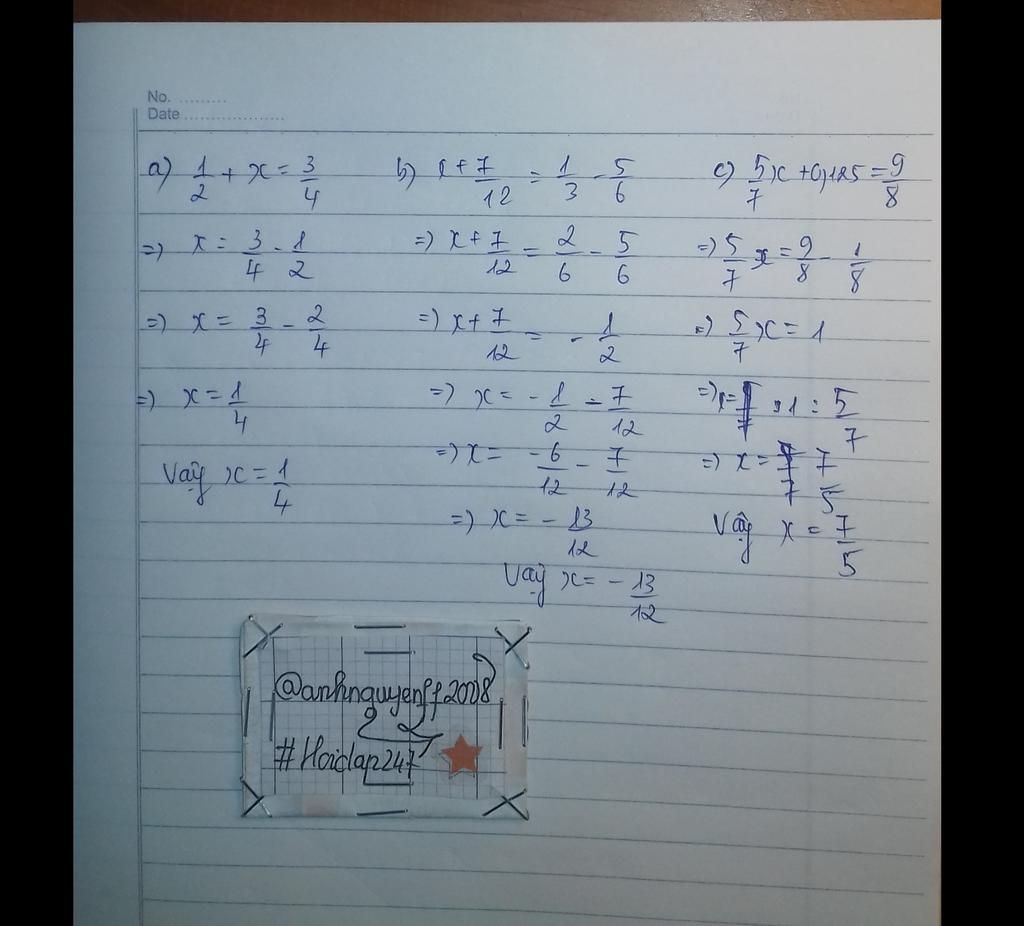 No. .........
Date ..................
a) 1/2 + x = 3/4
=) x = 3/4 - 1/2
=) x = 3/4 - 2/4
=) x = 1/4
Vậy x = 1/4
b) x + 7/12 = 1/3 - 5/6
=) x + 7/12 = 2/6 - 5/6
=) x + 7/12 = - 1/2
=) x = - 1/2 - 7/12
=) x = -6/12 - 7/12
=) x = - 13/12
Vậy x = - 13/12
c) 5/7 x + 0,125 = 9/8
=) 5/7 x = 9/8 - 1/8
=) 5/7 x = 1
=) x = 1 : 5/7
=) x = 7/5
Vậy x = 7/5
@anhnguyenff2008
#Hoidap247